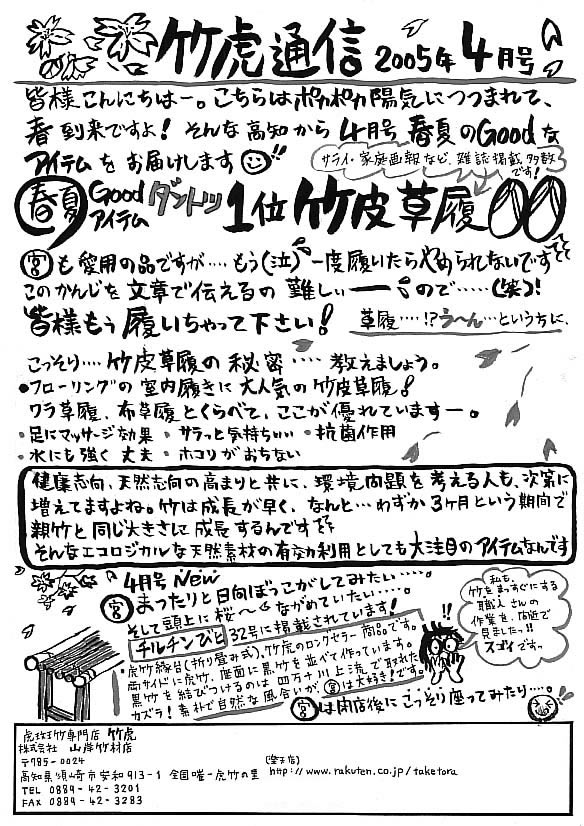 竹虎通信 2005年 4月号
皆様こんにちはー。こちらはポカポカ陽気につつまれて、
春到来ですよ! そんな高知から 4月号 春夏のGoodな
アイテムをお届けします!!
サライ・家庭画報など、雑誌掲載多数
です!
春夏 Good アイテム ダントツ 1位 竹皮草履
宮も愛用の品ですが…. もう(泣) 一度履いたらやめられないです
このかんじを文章で伝えるの難しいーーので……(笑)!
皆様もう履いちゃって下さい! 草履….!?う〜ん…という方に、
こっそり…. 竹皮草履の秘密….. 教えましょう。
●フローリングの室内履きに大人気の竹皮草履!
ワラ草履、布草履とくらべて、ここが優れていますー。
・足にマッサージ効果 ・サラっと気持ちいい ・抗菌作用
・水にも強く丈夫 ・ホコリがおちない
健康志向、天然志向の高まりと共に、環境問題を考える人も、次第に
増えてますよね。竹は成長が早く、なんと…わずか3ヶ月という期間で
親竹と同じ大きさに成長するんです
そんなエコロジカルな天然素材の有効利用としても大注目のアイテムなんです
4月号 New
宮 まったりと日向ぼっこがしてみたい…..
そして頭上に桜〜ながめていたい…..。
チルチンびと 32号に掲載されています!
・虎竹縁台(折り畳み式)、竹虎のロングセラー商品です。
両サイドに虎竹、座面に黒竹を並べて作っています。
黒竹を結びつけるのは四万十川上流で取れた
カズラ!素朴で自然な風合いが、宮は大好き!です。
宮は閉店後にこっそり座ってみたり…。
私も、
竹をまっすぐにする
職人さんの
作業を、間近で
見ました!!
スゴイです。
虎斑竹専門店 竹虎
株式会社 山岸竹材店
〒785-0024
高知県須崎市安和913-1 全国唯一虎竹の里
(楽天店) http://www.rakuten.co.jp/taketora
TEL 0889-42-3201
FAX 0889-42-3283